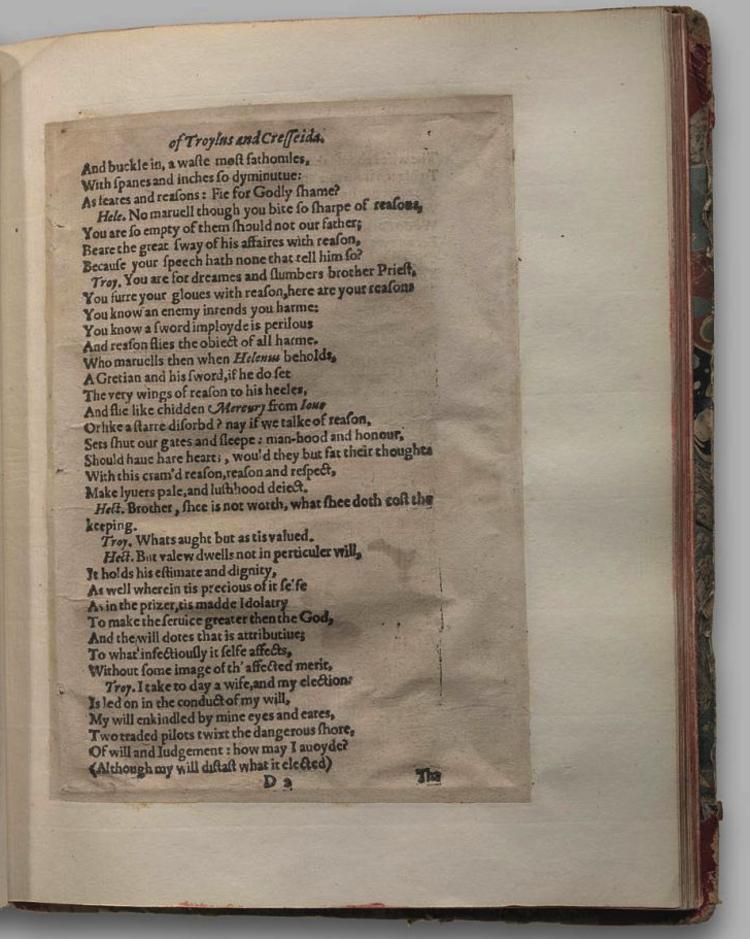 of Troylus and Cresseida.
And buckle in, a waste most fathomles,
With spanes and inches so dyminutue:
As feares and reasons: Fie for Godly shame?
Hele. No maruell though you bite so sharpe of reasons,
You are so empty of them should not our father;
Beare the great sway of his affaires with reason,
Because your speech hath none that tell him so?
Troy. You are for dreames and slumbers brother Priest,
You furre your gloues with reason, here are your reasons
You know an enemy intends you harme:
You know a sword imployde is perilous
And reason flies the obiect of all harme.
Who maruells then when Helenus beholds,
A Gretian and his sword, if he do set
The very wings of reason to his heeles,
And flie like chidden Mercury from Ioue
Or like a starre disorbd? nay if we talke of reason,
Sets shut our gates and sleepe: man-hood and honour,
Should haue hare hearts, wou'd they but fat their thoughts
With this cram'd reason, reason and respect,
Make lyuers pale, and lustihood deiect.
Hect. Brother, shee is not worth, what shee doth cost the
keeping.
Troy. Whats aught but as tis valued.
Hect. But valew dwells not in perticuler will,
It holds his estimate and dignity,
As well wherein tis precious of it selfe
As in the prizer, tis madde Idolatry
To make the seruice greater then the God,
And the will dotes that is attributiue;
To what infectiously it selfe affects,
Without some image of th' affected merit,
Troy. I take to day a wife, and my election:
Is led on in the conduct of my will,
My will enkindled by mine eyes and eares,
Two traded pilots twixt the dangerous shore,
Of will and Iudgement: how may I auoyde?
(Although my will distast what it elected)
D 2 The